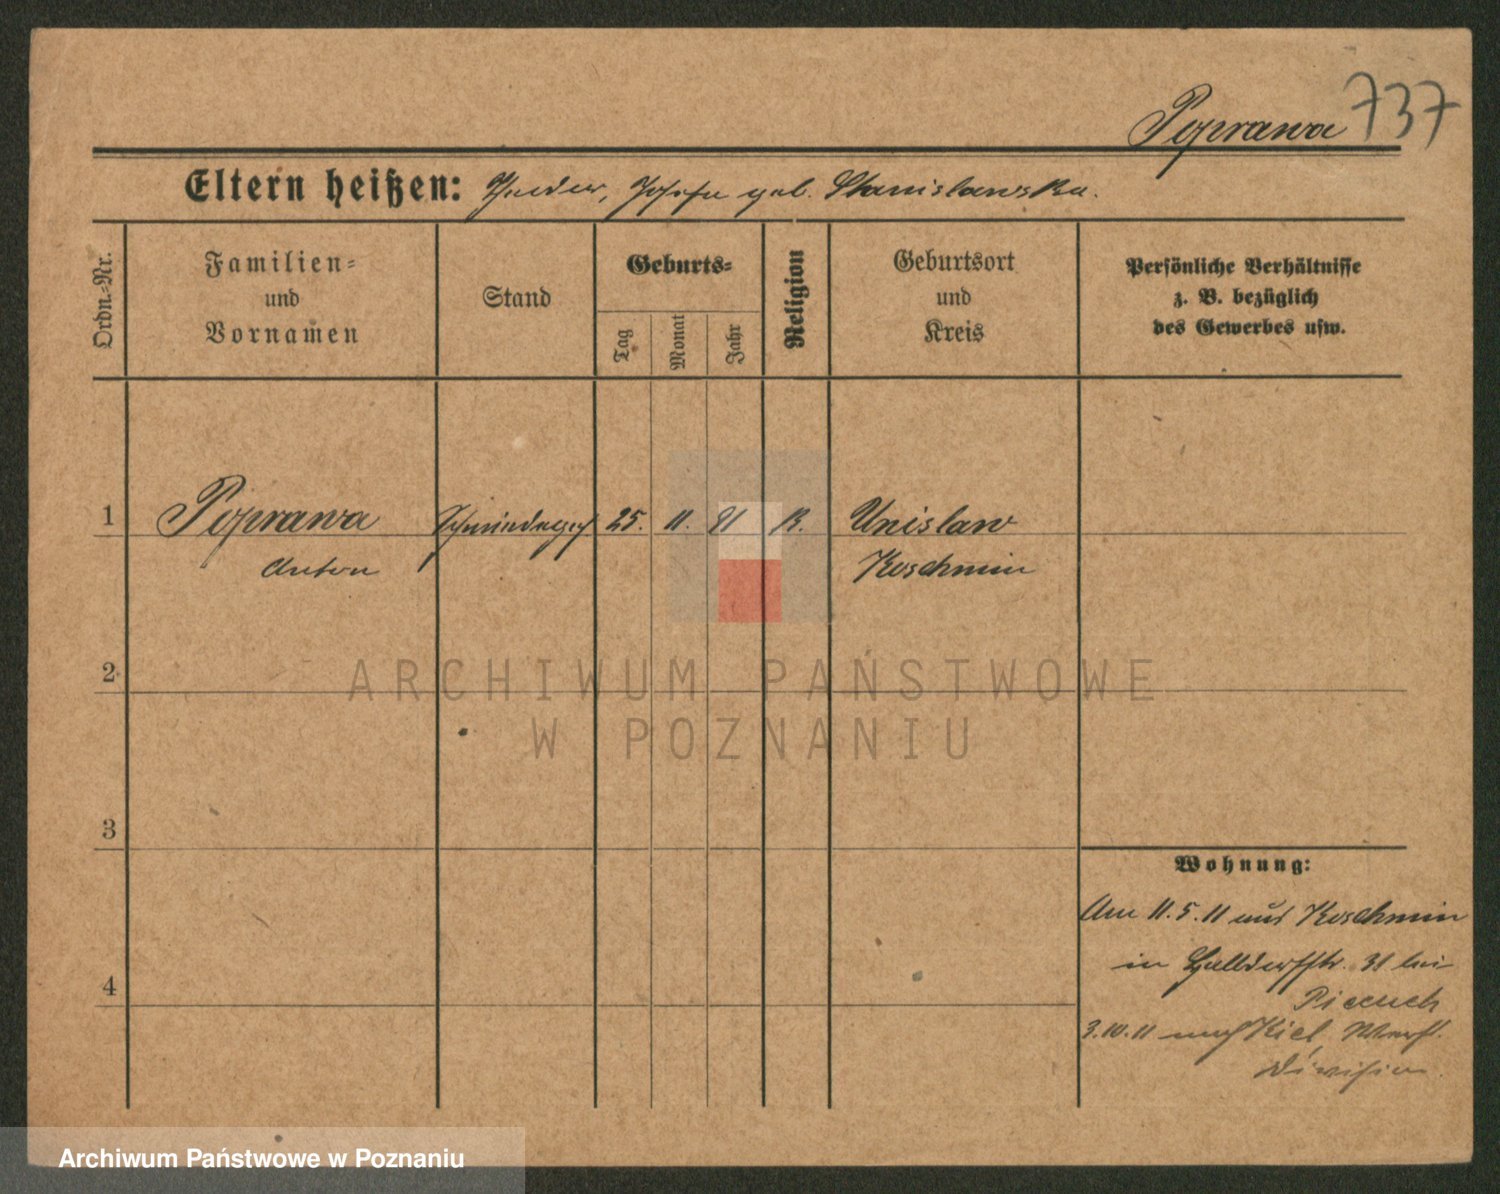 Poprawa 737
Eltern heißen: Josefa geb. Stanislawska.
Ordn.-Nr.
Familien-
und
Vornamen
Stand
Geburts-
Tag
Monat
Jahr
Religion
Geburtsort
und
Kreis
Persönliche Verhältnisse
z. B. bezüglich
des Gewerbes usw.
1 Poprawa Schmiedeges 25. 11. 91 Unislaw
Anton Koschmin
2
ARCHIWUM PAŃSTWOWE
W POZNANIU
3
4
Wohnung:
Am 11.5.11 aus Koschmin
in 31 bei
Piecuch
3.10.11 nach Kiel, Werft
Division.
Archiwum Państwowe w Poznaniu